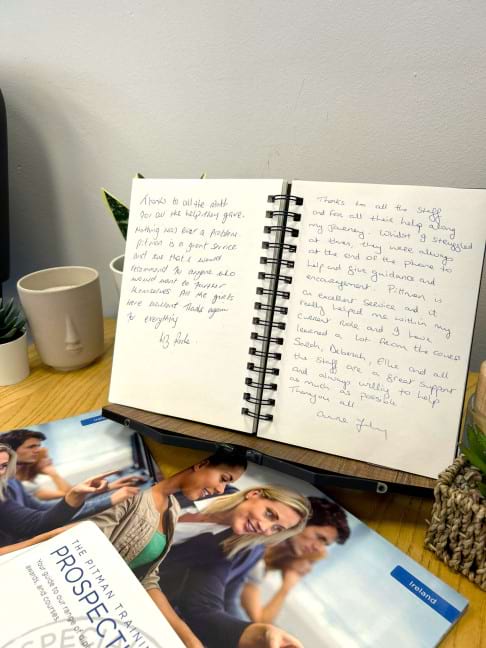 Thanks to all the staff
for all the help they gave.
Nothing was ever a problem.
Pitman is a great service
and one that I would
recommend to anyone who
would want to further
themselves. All the girls
here brilliant Thanks again
for everything
Thanks to all the staff
and for all their help along
my journey. Whilst I struggled
at times, they were always
at the end of the phone to
help and give guidance and
encouragement. Pittman is
an excellent service and it
really helped me within my
current role and I have
learned a lot from the course
Sarah, Deborah, Ellie and all
the staff are a great support
and always willing to help
as much as possible
Thank you all
Anne
Ireland
THE PITMAN TRAINI
PROSPECT
Your guide to our range of
awards, and courses
SPEC